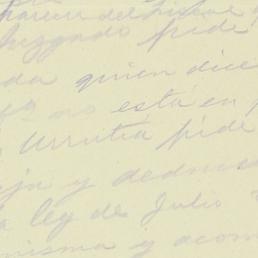 juzgado pide
da quien dice
no está en p
Urrutia pide
ja y deduce
a ley de Julio
misma y acom